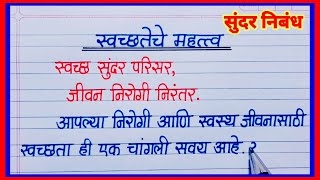 सुंदर निबंध
स्वच्छतेचे महत्त्व
स्वच्छ सुंदर परिसर,
जीवन निरोगी निरंतर.
आपल्या निरोगी आणि स्वस्थ जीवनासाठी
स्वच्छता ही एक चांगली सवय आहे.